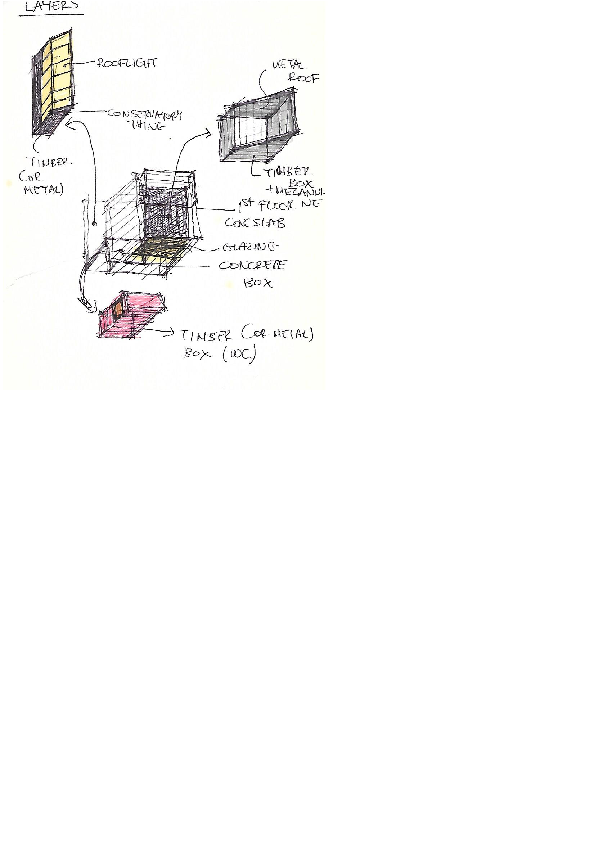 LAYERS
ROOFLIGHT
CONSERVATORY
THING
TIMBER
(OR
METAL)
METAL
ROOF
TIMBER
BOX
+ MEZANINE
1ST FLOOR
CONC SLAB
GLAZING
CONCRETE
BOX
TIMBER (OR METAL)
BOX (WC)